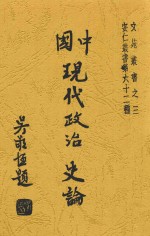 文苑叢書之三
安仁叢書第六十二輯
中國
現代政治史論
吳敬恆題